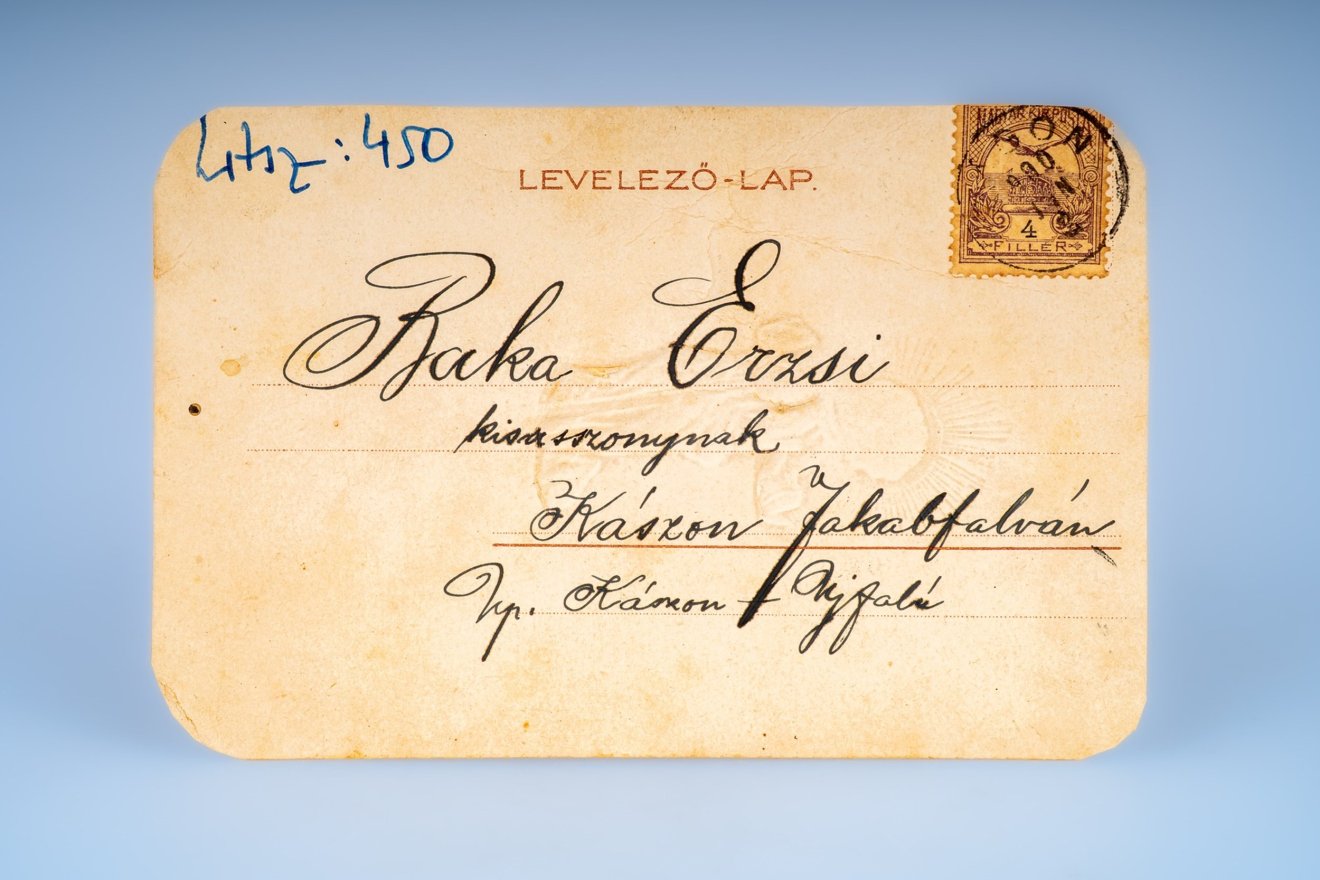 Ltsz: 450
LEVELEZŐ-LAP.
MAGYAR KIR POSTA
4
FILLÉR
Baka Erzsi
kisasszonynak
Kászon Jakabfalván
Up. Kászon - Ujfalú